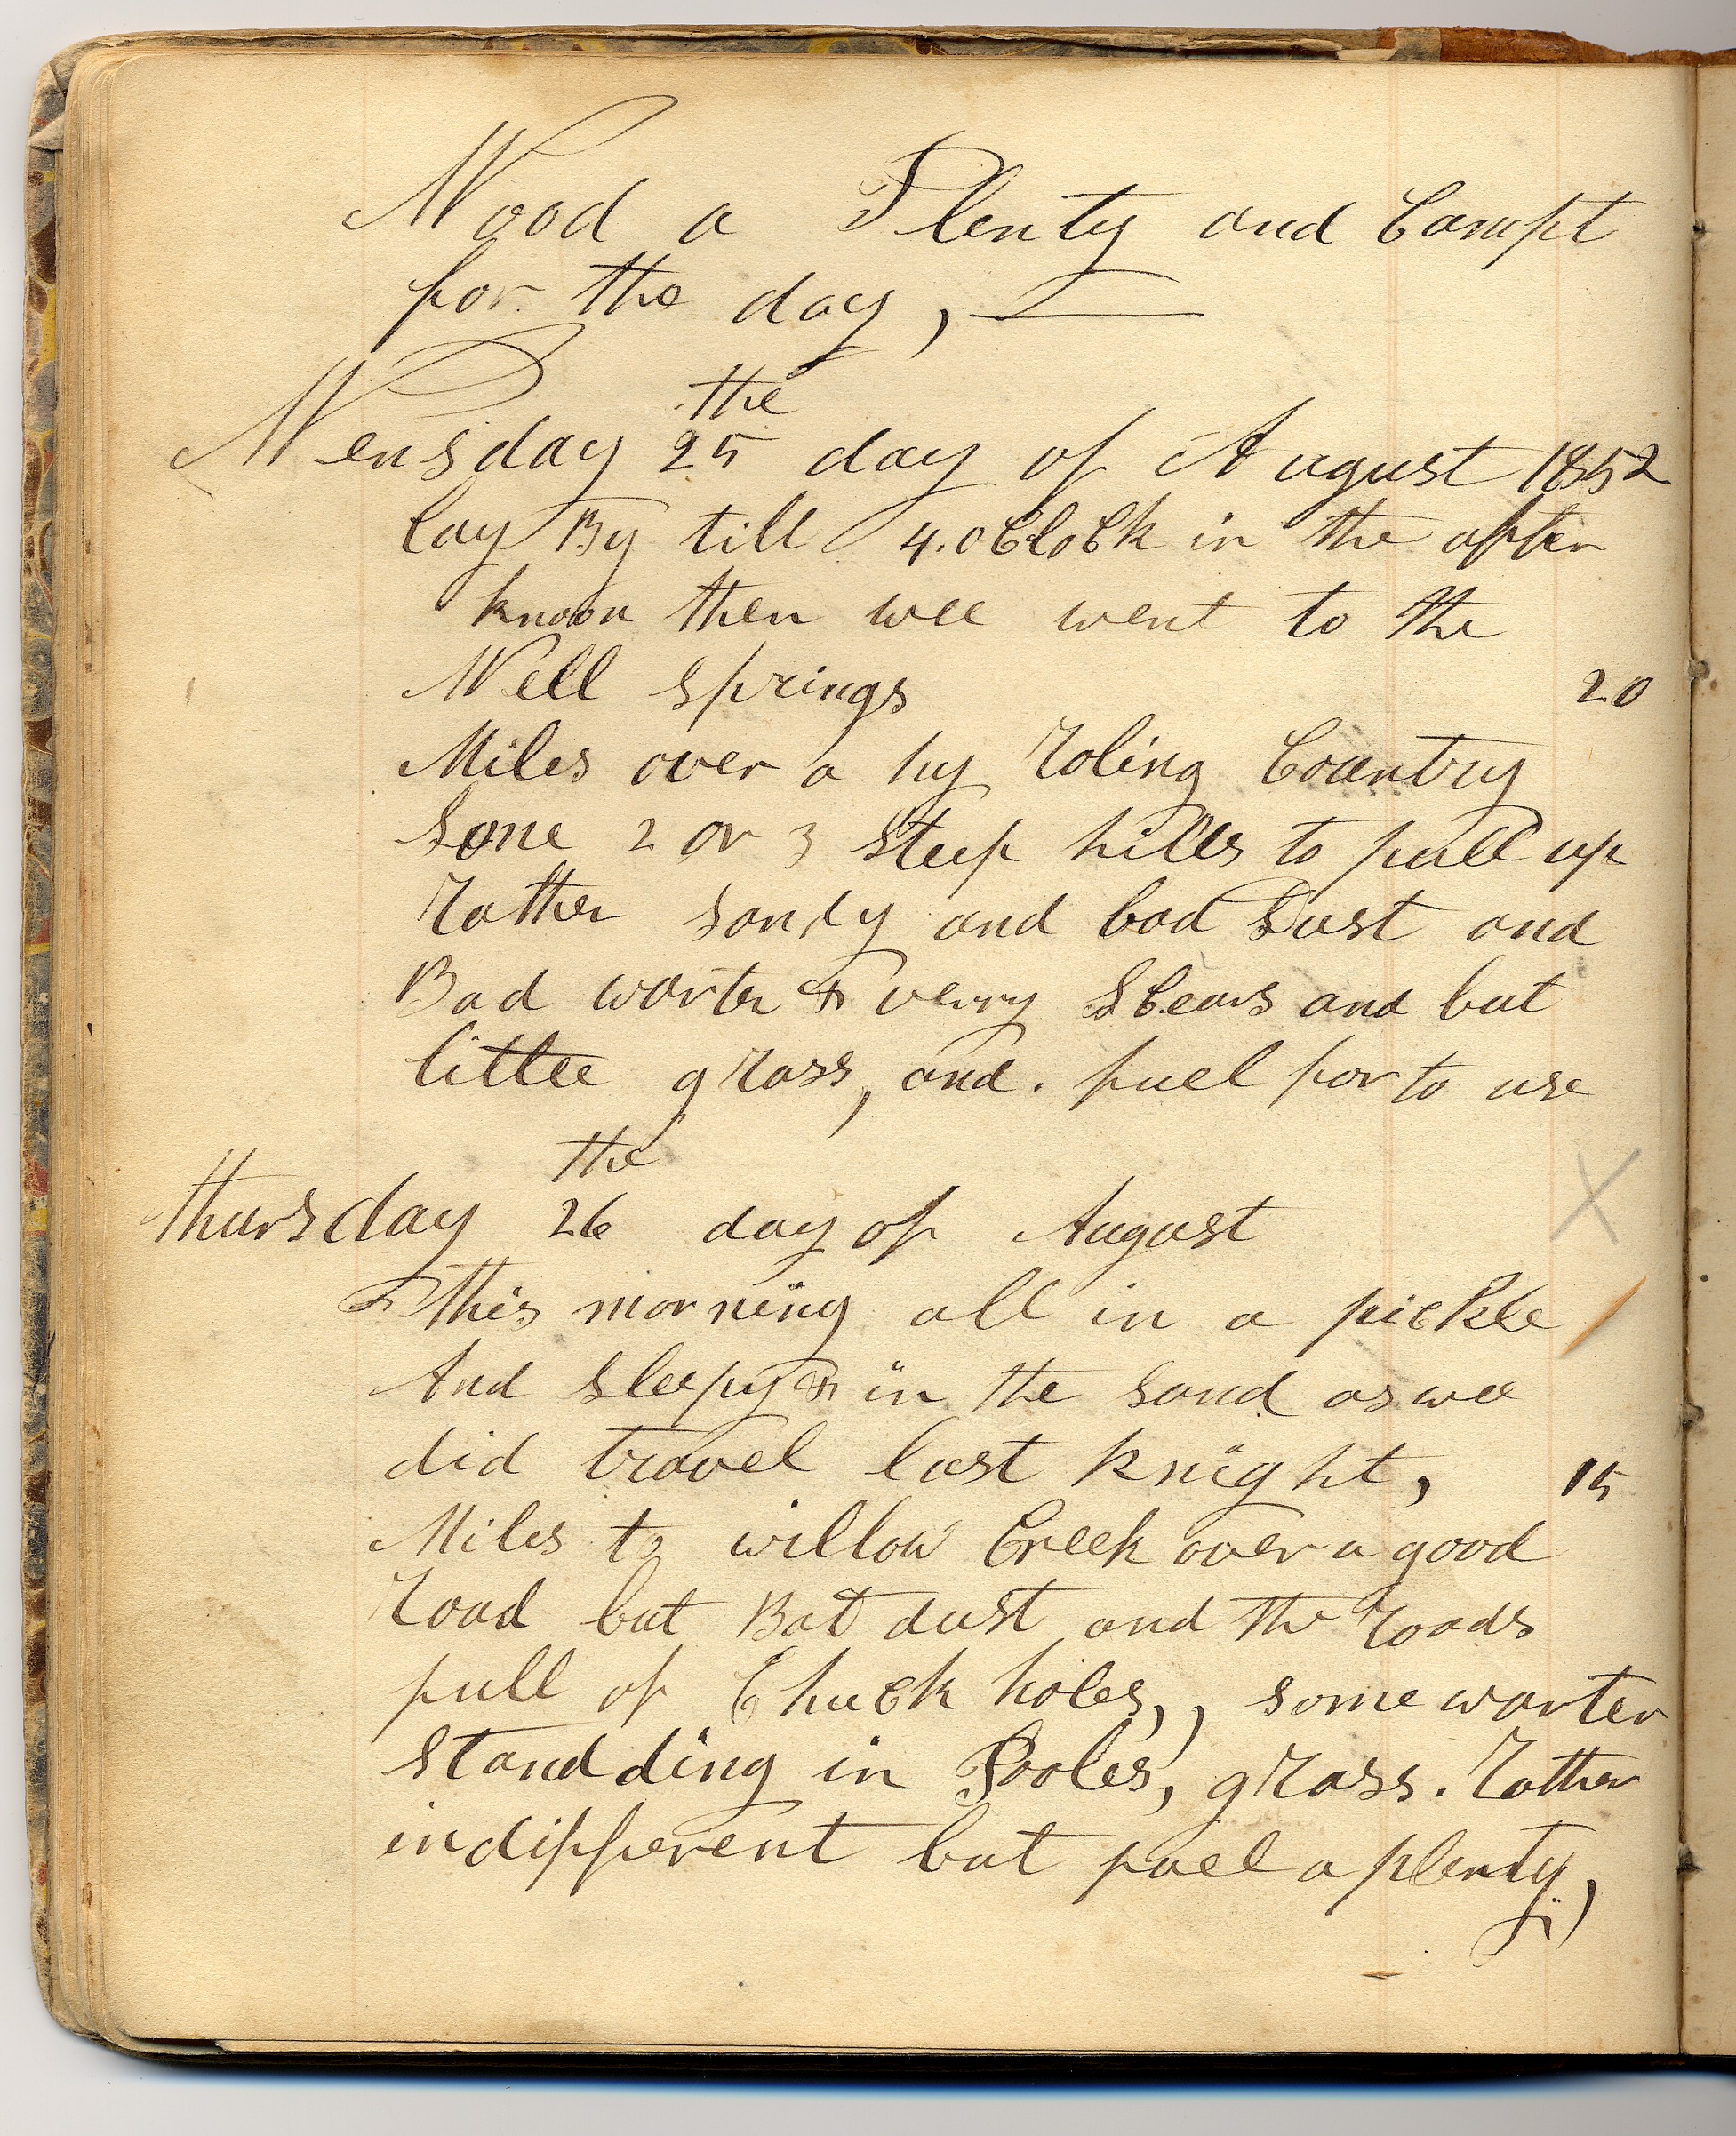 Wood a Plenty and Campt
for the day, —
the
Wensday 25 day of August 1852
lay By till 4.oCloCk in the after
knoon then wee went to the
Well springs 20
Miles over a hy Roling Country
Some 2 or 3 steep hills to pull up
Rather sandy and bad Dust and
Bad warter & verry SCears and but
littee grass, and. fuel for to use
the
thursday 26 day of August
this morning all in a picKle
And sleepy & in the sand as wee
did travel last Knight, 15
Miles to willow Creek over a good
Road but Bat dust and the Roads
full of ChucK holes,, some warter
standding in Pooles, grass. Rather
indifferent but fuel a plenty,